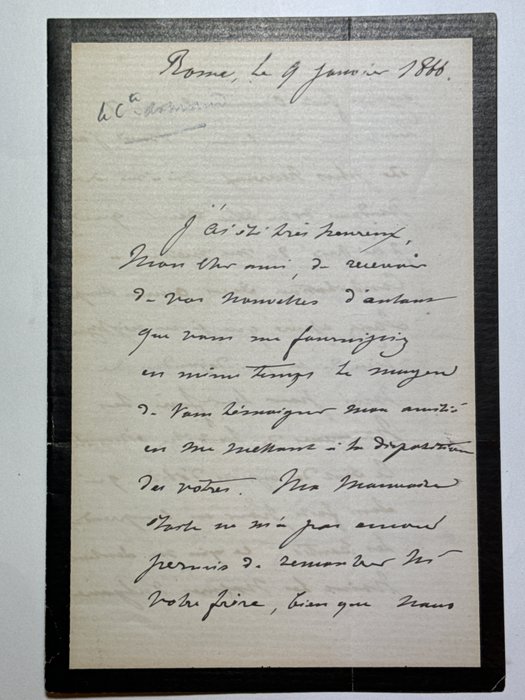 Rome, le 9 janvier 1866.
le Cte
J'ai été très heureux,
Mon cher ami, de recevoir
de vos nouvelles d'autant
que vous me fournissiez
en même temps le moyen
de vous témoigner mon amitié
en me mettant à la disposition
des vôtres. Ma mauvaise
étoile ne m'a pas encore
permis de rencontrer Mr
votre frère, bien que nous